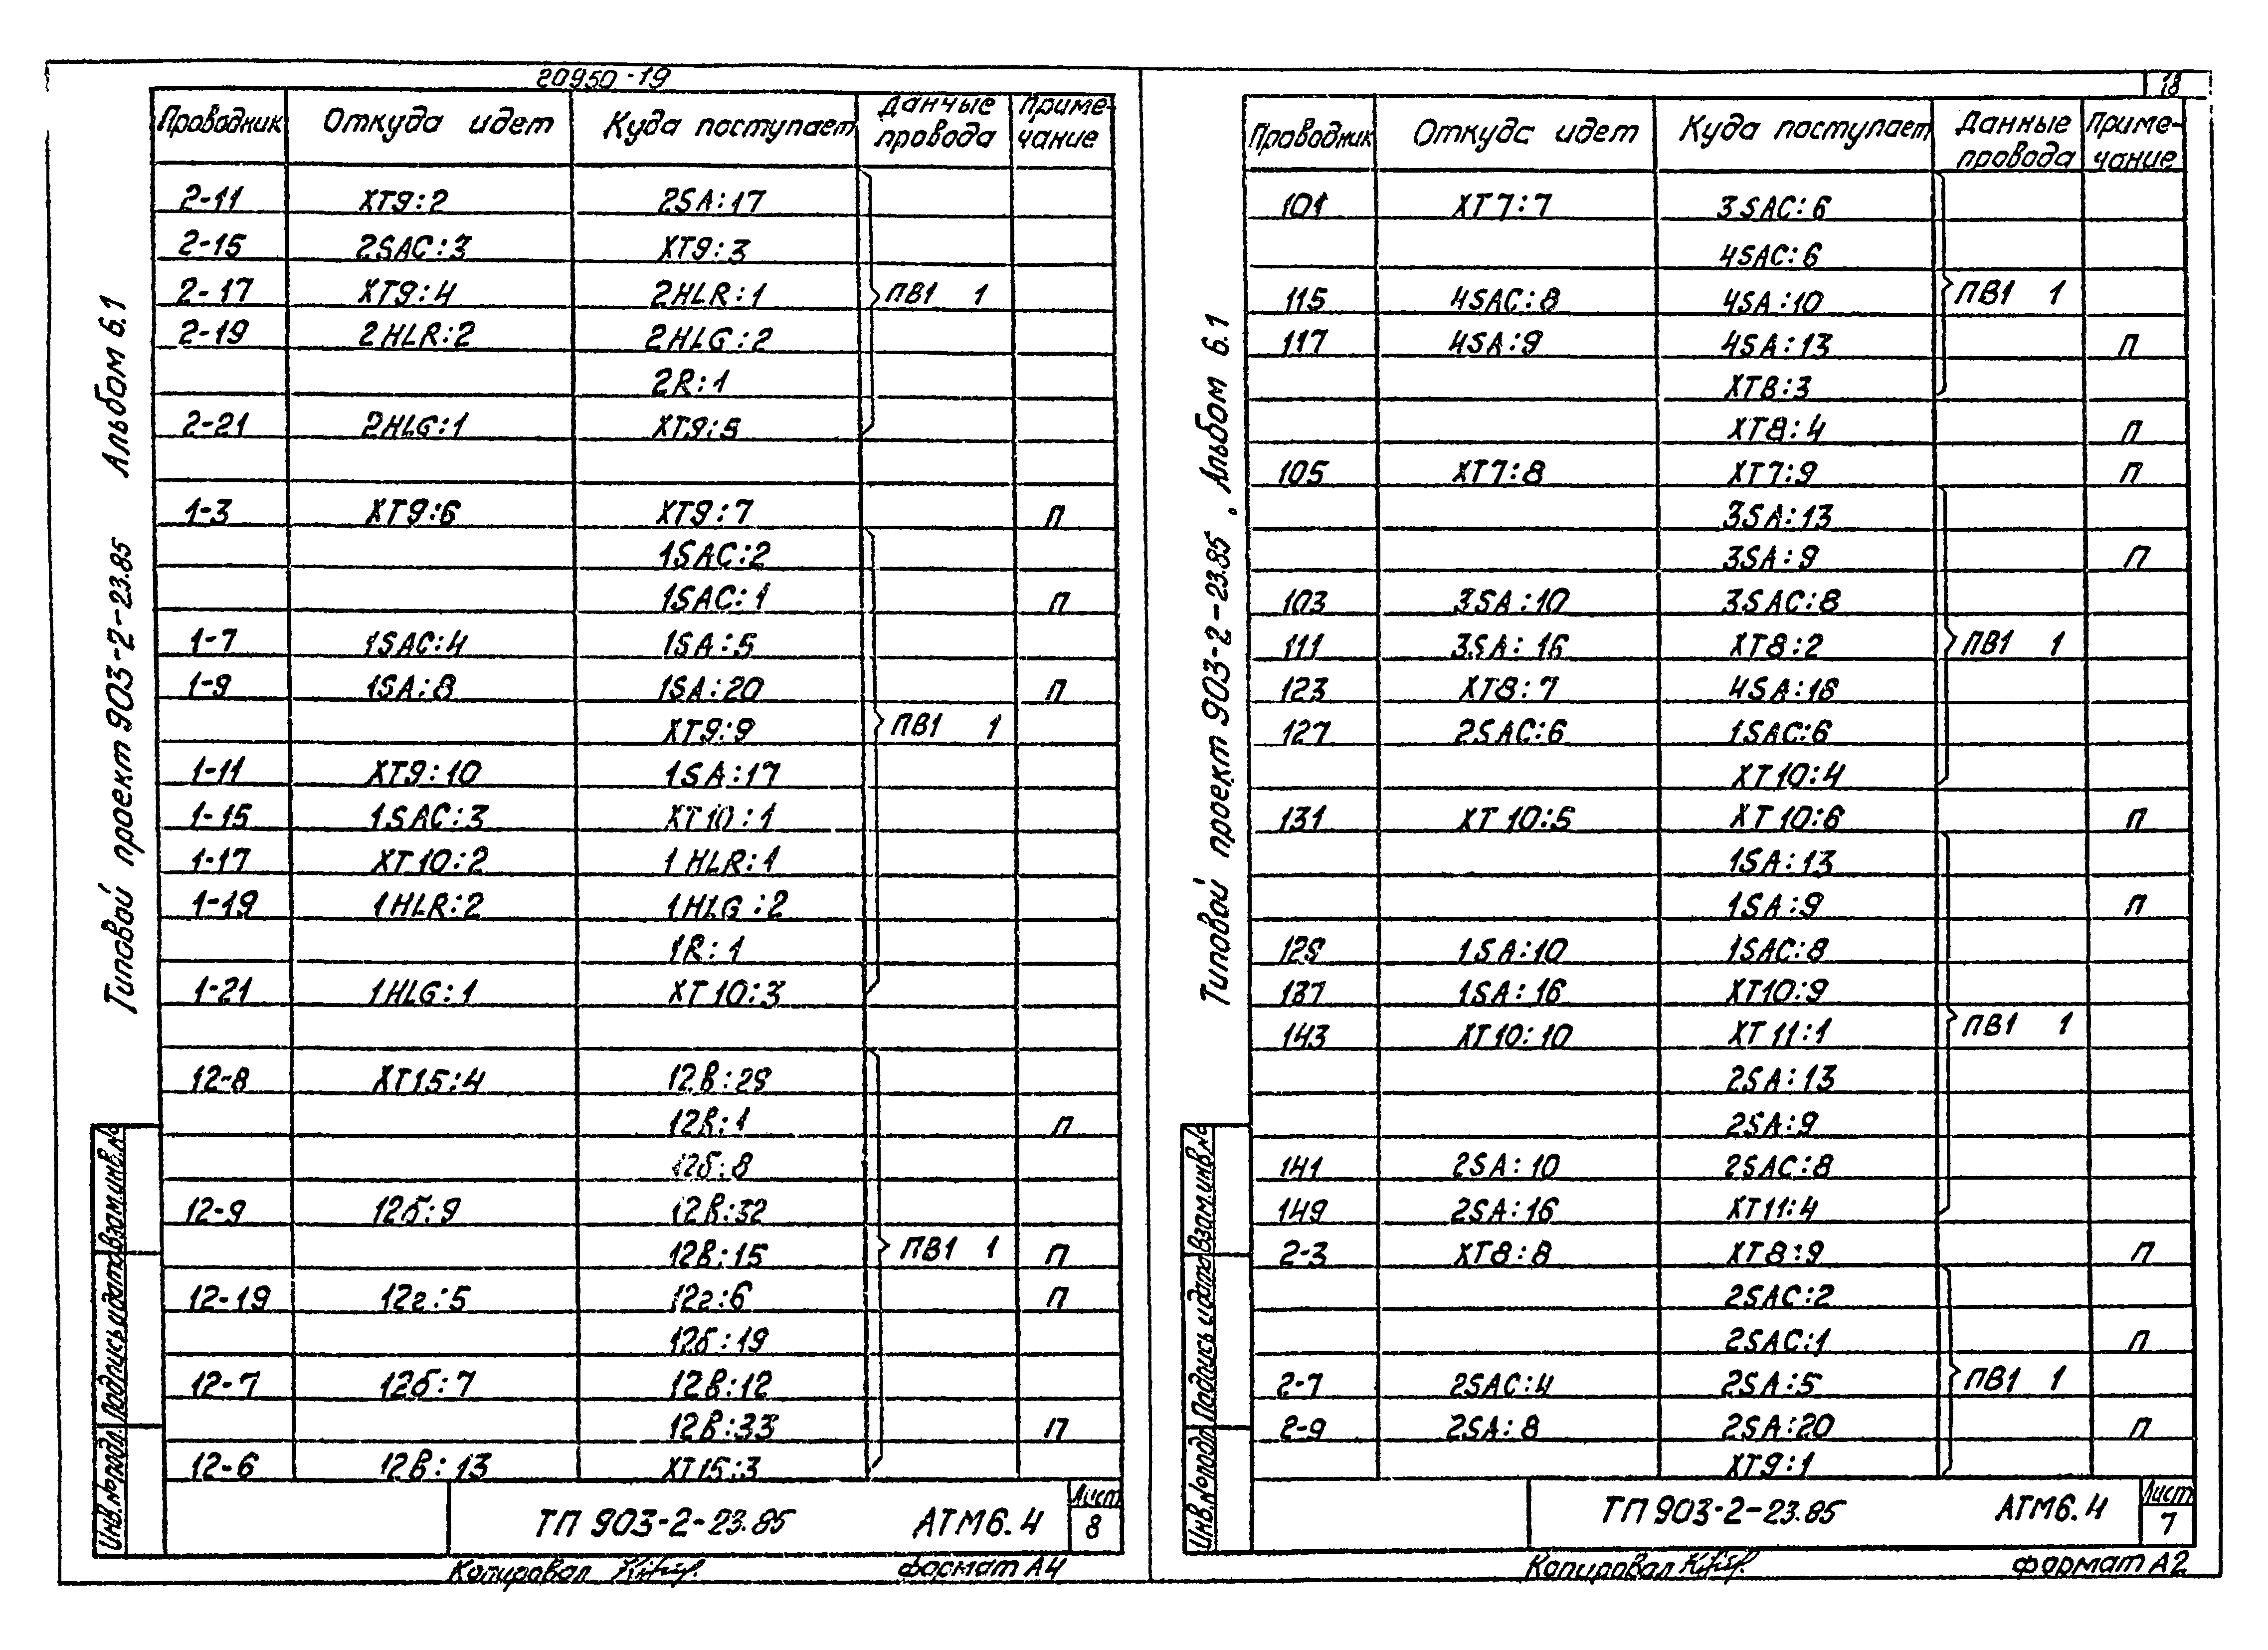 20950-19
Проводник Откуда идет Куда поступает Данные провода Примечание
2-11 XT9:2 2SA:17
2-15 2SAC:3 XT9:3
2-17 XT9:4 2HLR:1 ПВ1 1
2-19 2HLR:2 2HLG:2
2R:1
2-21 2HLG:1 XT9:5
1-3 XT9:6 XT9:7 П
1SAC:2
1SAC:1 П
1-7 1SAC:4 1SA:5
1-9 1SA:8 1SA:20 П
XT9:9 ПВ1 1
1-11 XT9:10 1SA:17
1-15 1SAC:3 XT10:1
1-17 XT10:2 1HLR:1
1-19 1HLR:2 1HLG:2
1R:1
1-21 1HLG:1 XT10:3
12-8 XT15:4 12В:29
12В:1 П
12б:8
12-9 12б:9 12В:32
12В:15 ПВ1 1 П
12-19 12г:5 12г:6 П
12б:19
12-7 12б:7 12В:12
12В:33 П
12-6 12В:13 XT15:3
ТП 903-2-23.85 АТМ6.4 Лист 8
Копировал формат А4
Типовой проект 903-2-23.85 Альбом 6.1
Инв.№подл. Подпись и дата Взам.инв.№
18
Проводник Откуда идет Куда поступает Данные провода Примечание
101 XT7:7 3SAC:6
4SAC:6
115 4SAC:8 4SA:10 ПВ1 1
117 4SA:9 4SA:13 П
XT8:3
XT8:4 П
105 XT7:8 XT7:9 П
3SA:13
3SA:9 П
103 3SA:10 3SAC:8
111 3SA:16 XT8:2 ПВ1 1
123 XT8:7 4SA:16
127 2SAC:6 1SAC:6
XT10:4
131 XT10:5 XT10:6 П
1SA:13
1SA:9 П
129 1SA:10 1SAC:8
137 1SA:16 XT10:9
143 XT10:10 XT11:1 ПВ1 1
2SA:13
2SA:9
141 2SA:10 2SAC:8
149 2SA:16 XT11:4
2-3 XT8:8 XT8:9 П
2SAC:2
2SAC:1 П
2-7 2SAC:4 2SA:5 ПВ1 1
2-9 2SA:8 2SA:20 П
XT9:1
ТП 903-2-23.85 АТМ6.4 Лист 7
Копировал формат А2
Типовой проект 903-2-23.85. Альбом 6.1
Инв.№подл. Подпись и дата Взам.инв.№